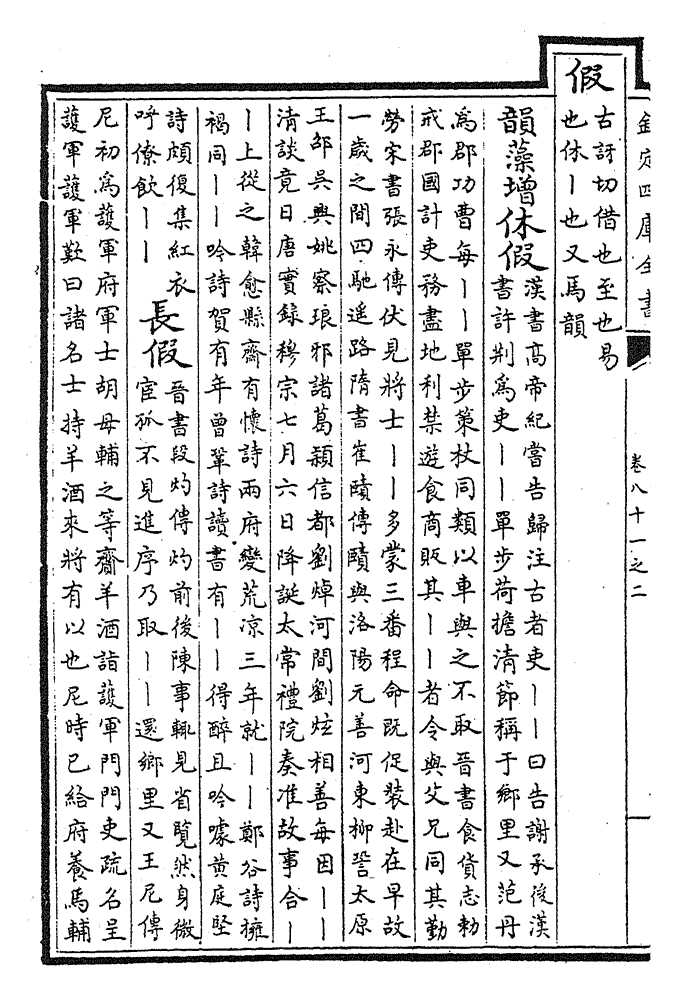 欽定四庫全書　卷八十一之二
假
古訝切借也至也易
也休丨也又馬韻
韻藻增休假
漢書高帝紀嘗告歸注古者吏丨丨曰告謝承後漢
書許荆為吏丨丨單步荷擔清節稱于鄉里又范丹
為郡功曹每丨丨單步策杖同類以車與之不取晉書食貨志勅
戒郡國計吏務盡地利禁遊食商販其丨丨者令與父兄同其勤
勞宋書張永傳伏見將士丨丨多蒙三番程命既促裝赴在早故
一歲之間四馳遥路隋書崔賾傳賾與洛陽元善河東柳䛒太原
王邵吳興姚察琅邪諸葛潁信都劉焯河間劉炫相善每因丨丨
清談竟日唐實録穆宗七月六日降誕太常禮院奏准故事合丨
丨上從之韓愈縣齋有懷詩兩府變荒凉三年就丨丨鄭谷詩擁
褐同丨丨吟詩賀有年曾鞏詩讀書有丨丨得醉且吟噱黄庭堅
詩頗復集紅衣
呼僚飲丨丨
長假
晉書段灼傳灼前後陳事輒見省覽然身微
宦孤不見進序乃取丨丨還鄉里又王尼傳
尼初為護軍府軍士胡毋輔之等齎羊酒詣護軍門門吏疏名呈
護軍護軍歎曰諸名士持羊酒來將有以也尼時已給府養馬輔